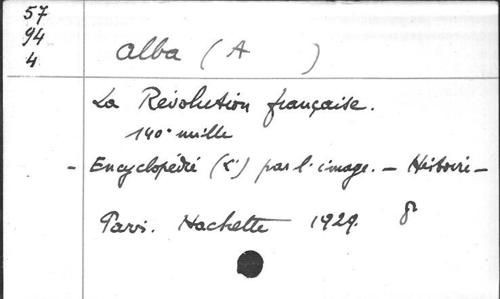 57
94
4
Alba (A )
La Révolution française.
140e mille
- Encyclopédie (L') par l'image. - Histoire -
Paris. Hachette 1929. 8°